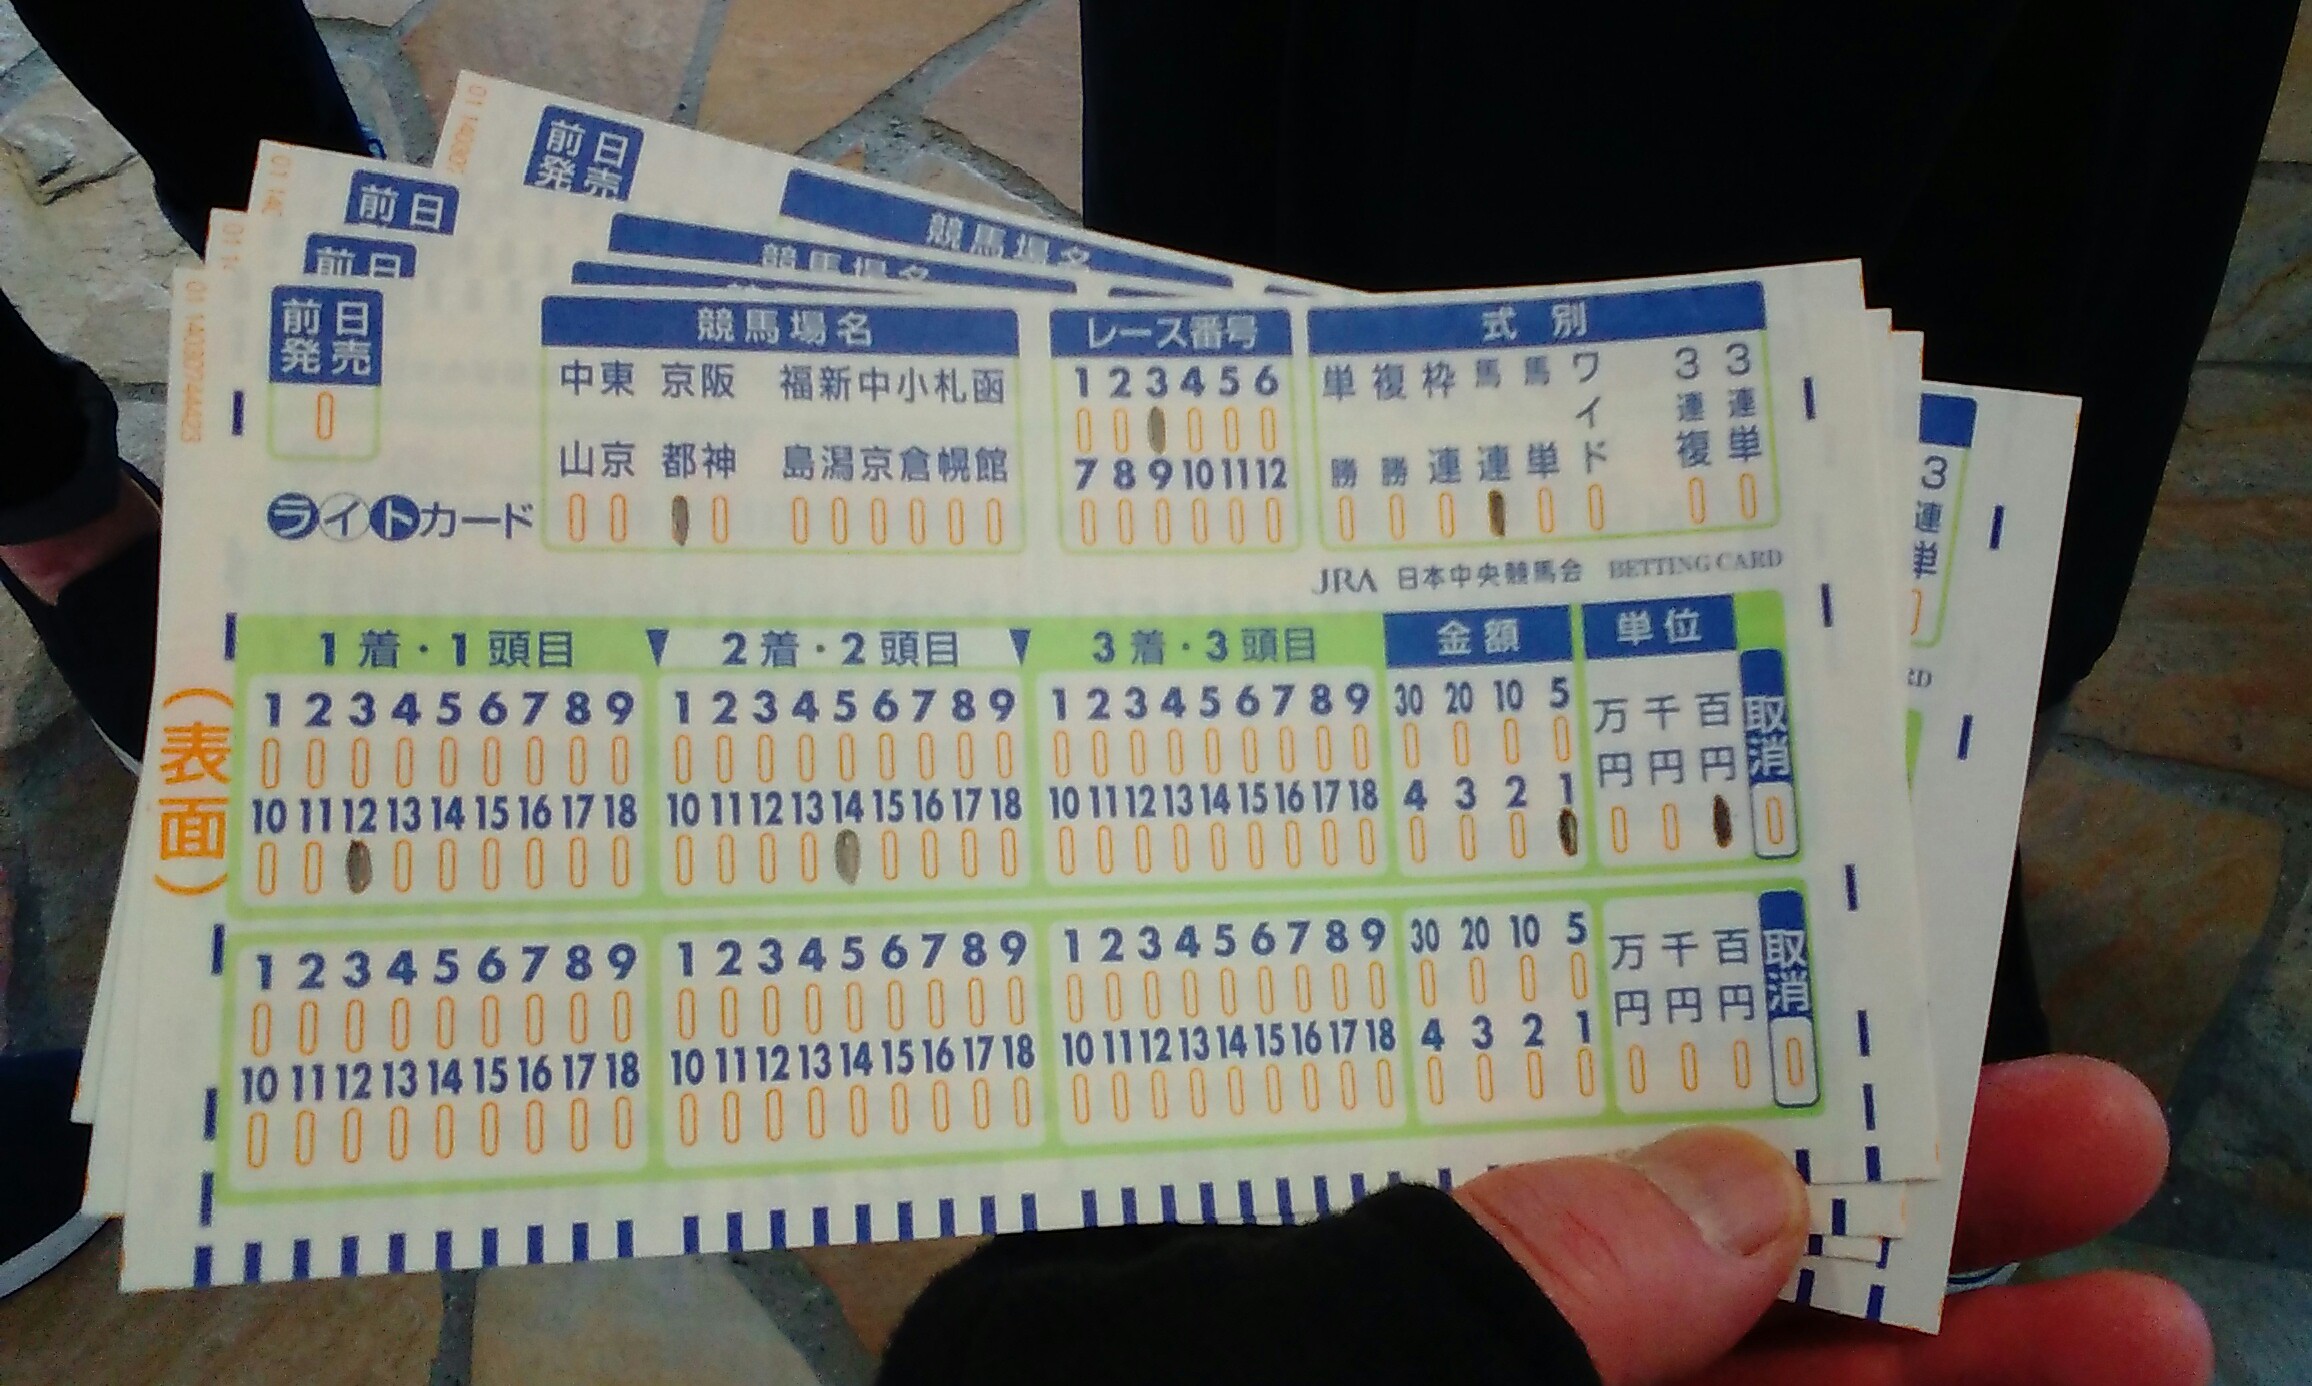 前日
発売
競馬場名
前日
競馬場名
前日
前日
発売
競馬場名
レース番号
式別
中東 京阪 福新中小札函
山京 都神 島潟京倉幌館
1 2 3 4 5 6
7 8 9 10 11 12
単勝 複勝 枠連 馬連 馬単 ワイド 3連複 3連単
ライトカード
JRA 日本中央競馬会 BETTING CARD
(表面)
1着・1頭目 2着・2頭目 3着・3頭目 金額 単位
1 2 3 4 5 6 7 8 9 1 2 3 4 5 6 7 8 9 1 2 3 4 5 6 7 8 9 30 20 10 5 万円 千円 百円 取消
10 11 12 13 14 15 16 17 18 10 11 12 13 14 15 16 17 18 10 11 12 13 14 15 16 17 18 4 3 2 1
1 2 3 4 5 6 7 8 9 1 2 3 4 5 6 7 8 9 1 2 3 4 5 6 7 8 9 30 20 10 5 万円 千円 百円 取消
10 11 12 13 14 15 16 17 18 10 11 12 13 14 15 16 17 18 10 11 12 13 14 15 16 17 18 4 3 2 1
3連単
RD